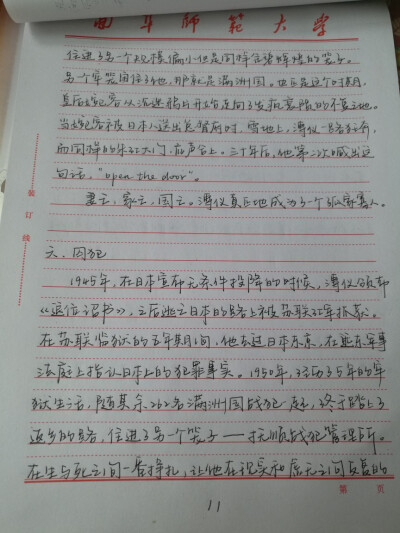 曲阜师范大学
住进了另一个规模偏小但是同样金碧辉煌的笼子。
另一个牢笼困住了他,那就是满洲国。也正是这个时期,
皇后婉容从沉迷鸦片开始走向了失孤寡陪的不复之地。
当婉容被日本人送出总督府时,雪地上,溥仪一路狂奔,
而同样的朱红大门,在声合上。三十年后,他第二次喊出这
句话,"open the door"。
君亡,家亡,国亡。溥仪真正地成为了一个孤家寡人。
六、囚犯
1945年,在日本宣布无条件投降的时候,溥仪颁布
《退位诏书》,之后逃亡日本的路上被苏联红军抓获。
在苏联监狱的五年期间,他去过日本东京,在远东军事
法庭上指认日本的犯罪事实。1950年,经历5年的牢
狱生活,随其余262名满洲国战犯一起,终于踏上了
返乡的路,住进了另一个笼子——抚顺战犯管理所。
在生与死之间一番挣扎,让他在现实和虚无之间反复的
装订线
第 页
11